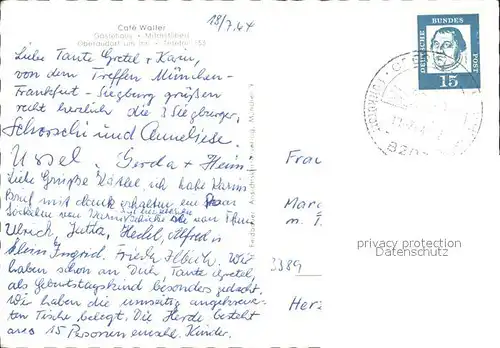 18/7.64
Café Walter
Gästehaus • Milchstüberl
Oberaudorf am Inn • Telefon 153
Liebe Tante Gretel + Karin,
von dem Treffen München-
Frankfurt - Siegburg grüßen
recht herzlich die 3 Siegburger,
Schorschi und Anneliese.
Ursel. Gerda + Heini
Liebe Grüße Käthel, ich habe Karins
Brief mit dank erhalten ein paar
Söckchen von Karin
Ulrich, Jutta, Hedel, Alfred u
klein Ingrid. Frieda
haben schon an Dich Tante Gretel
als Geburtstagskind besonders gedacht.
Wir haben die umsäumig
ten Tische belegt. Die Herde besteht
aus 15 Personen einschl. Kinder.
DEUTSCHE BUNDESPOST
15
8203
Frau
Marg
m. T
3389
Herz
privacy protection
Datenschutz